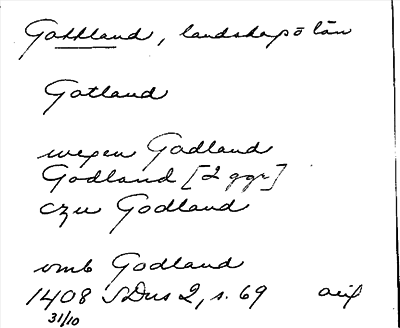 Gottland, landskap o län
Gotland
wegen Godland
Godland [2 ggr]
czu Godland
vmb Godland
1408 SDns 2, s. 69
31/10